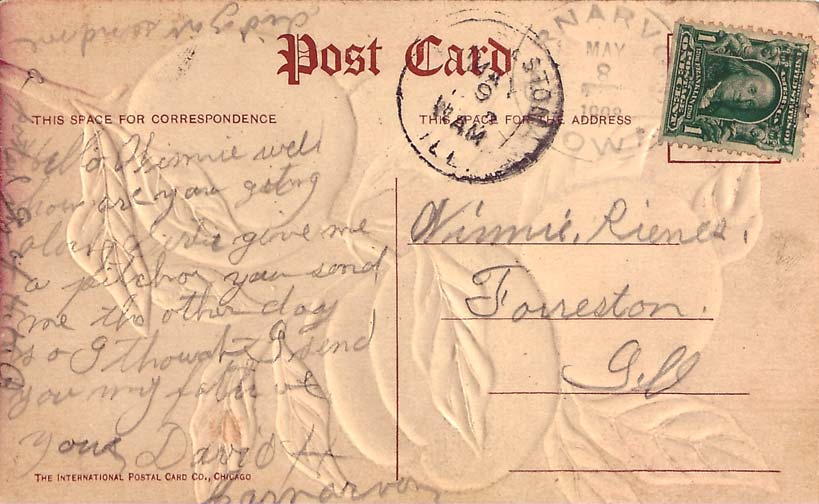 Post Card
THIS SPACE FOR CORRESPONDENCE
THIS SPACE FOR THE ADDRESS
RNARVO
MAY
8
1908
IOWA
STON
MAY
9
AM
ILL.
1
1
Hello Winnie well
how are you geting
along
give me
a pitchor you send
me the other day
so I thought I send
you my
Yous David H
Carnarvon
Winnie, Rienes.
Forreston.
Ill
THE INTERNATIONAL POSTAL CARD CO., CHICAGO